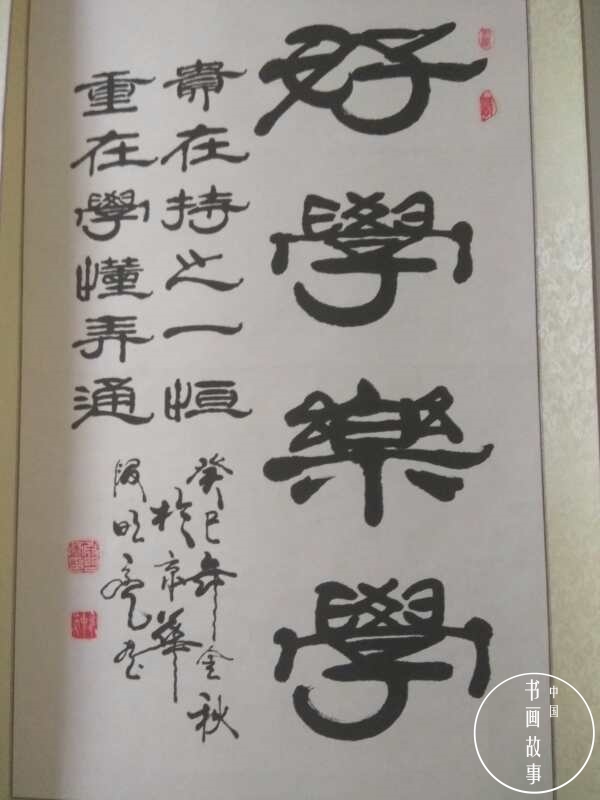 好學樂學
貴在持之一恒
重在學懂弄通
癸巳年金秋
於京華
中国
书画故事